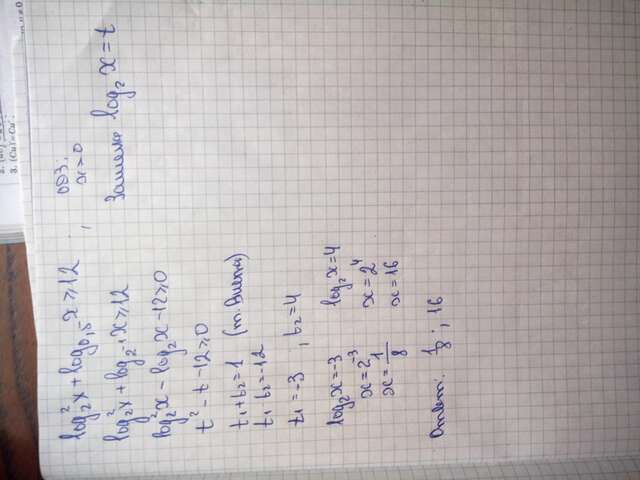 3. (Cu)-Cu
log₂²x + log₀,₅x ≥ 12 ;
ОДЗ:
x>0
log₂²x + log₂₋₁x ≥ 12
Замена log₂x = t
log₂²x - log₂x - 12 ≥ 0
t² - t - 12 ≥ 0
t₁ + t₂ = 1 (т. Виета)
t₁ · t₂ = -12
t₁ = -3 ; t₂ = 4
log₂x = -3 log₂x = 4
x = 2⁻³ x = 2⁴
x = 1/8 x = 16
Ответ: 1/8 ; 16